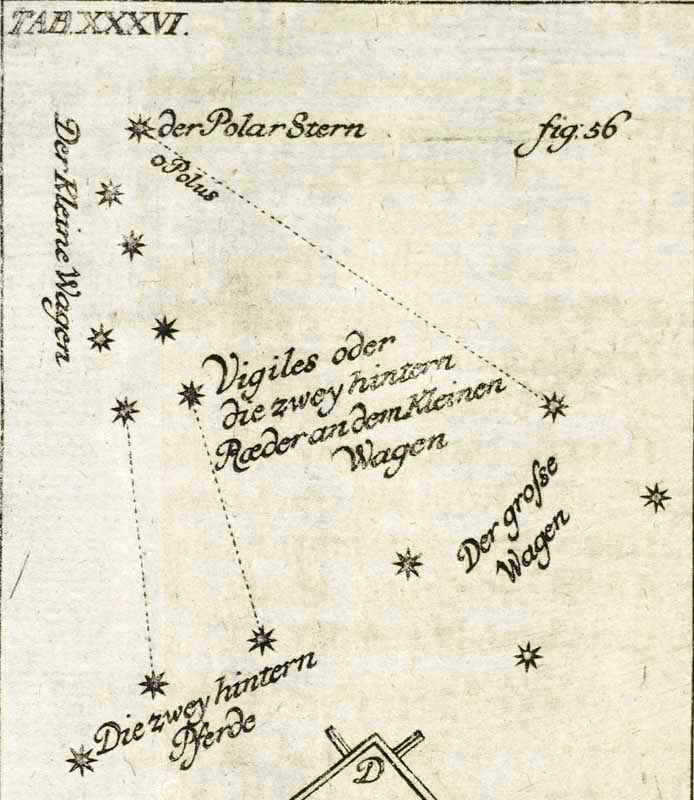 TAB. XXXVI.
der Polar Stern
fig: 56
o Polus
Der Kleine Wagen
Vigiles oder
die zwey hintern
Ræder an dem Kleinen
Wagen
Der groſse
Wagen
Die zwey hintern
Pferde
D